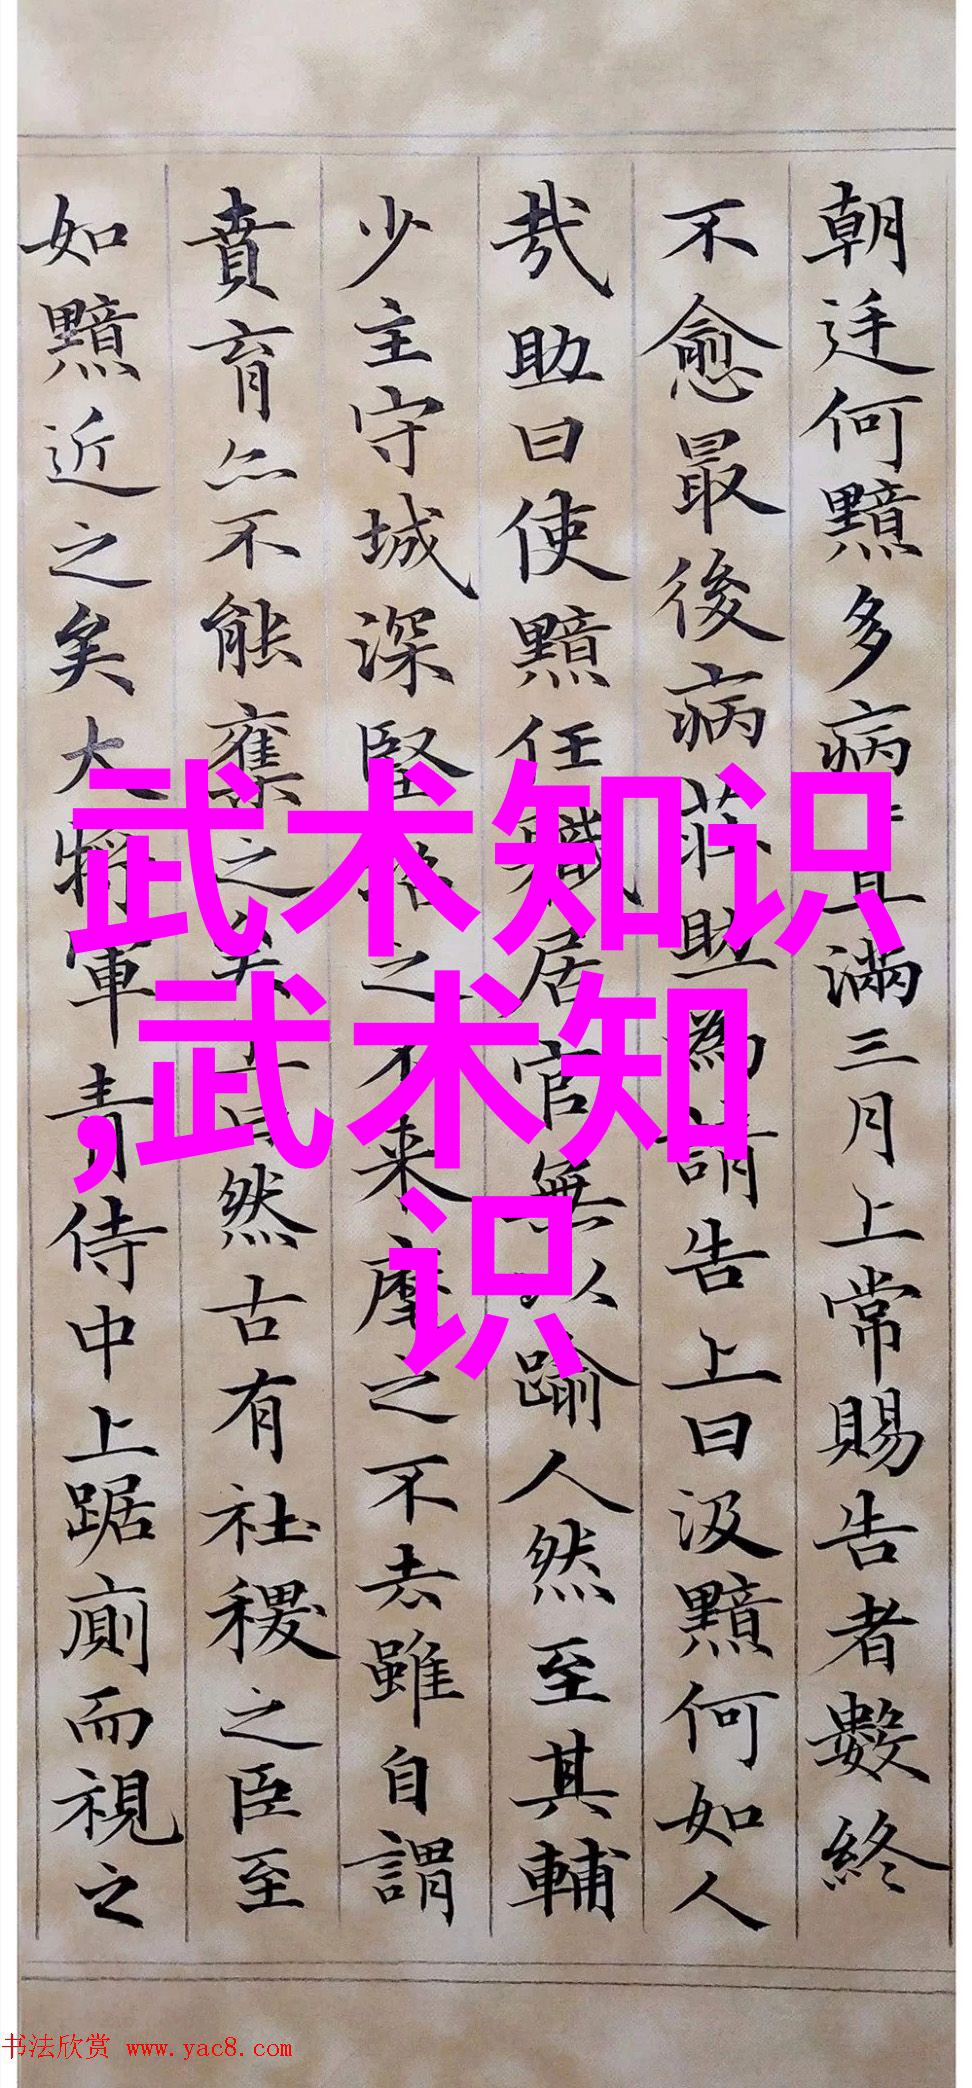 朝廷何黯多病病且滿三月上常賜告者數終
不愈最後病莊助為請告上曰汲黯何如人
哉助曰使黯任職居官無以踰人然至其輔
少主守城深堅招之不來摩之不去雖自謂
賁育亦不能奪之矣上曰然古有社稷之臣至
如黯近之矣大將軍青侍中上踞廁而視之
武术知识
,武术知
识
书法欣赏 www.yac8.com